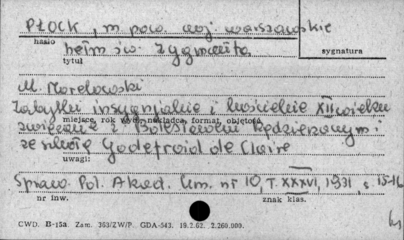 PŁOCK, m. pow. woj. warszawskie
hasło
hełm św. Zygmunta
sygnatura
tytuł
M. Morelowski
Zabytki insygnialne i kościelne XII wieku
miejsce, rok wyd., nakładca, format, objętość
związane z Bolesławem Kędzierzawym i
ze szkołą Godefroid de Claire
uwagi:
Spraw. Pol. Akad. Um. nr 10, T. XXXVI, 1931, s. 15-16
nr inw.
znak klas.
CWD. B-15a. Zam. 363/ZW/P. GDA-543. 19.2.62. 2.260.000.